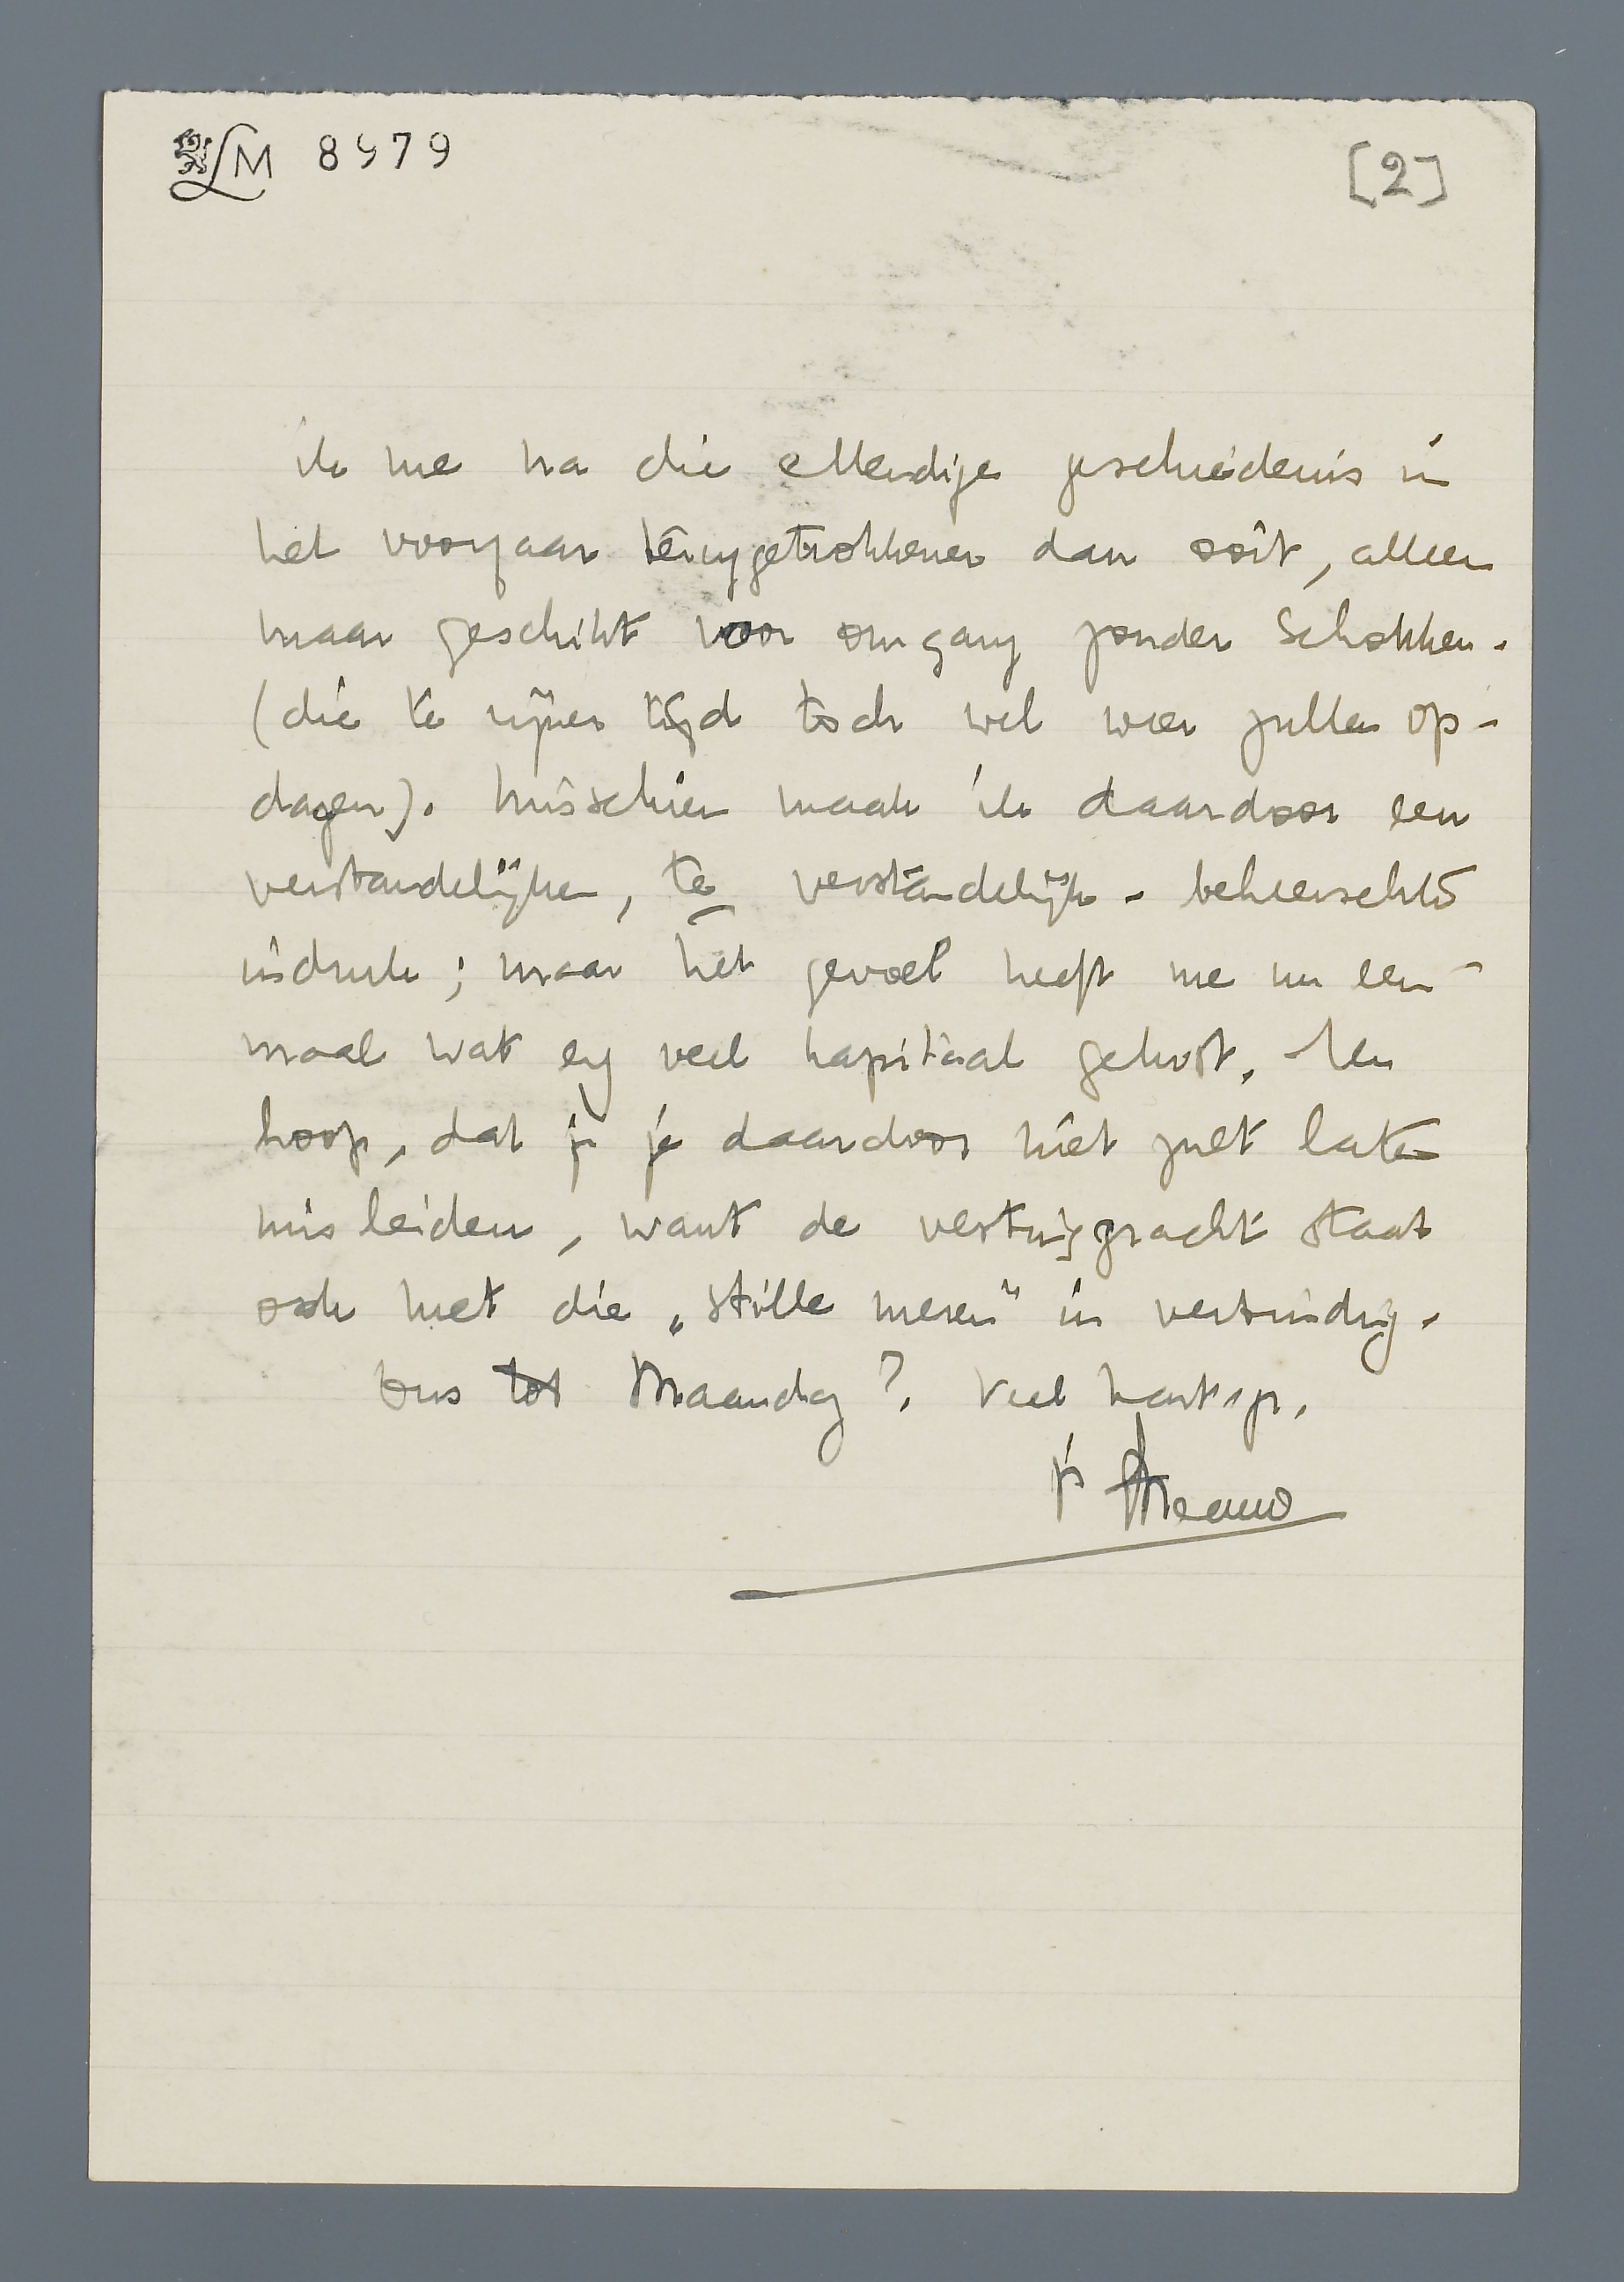 LM 8979
[2]
ik me na die ellendige geschiedenis in
het voorjaar teruggetrokkener dan ooit, alleen
maar geschikt voor omgang zonder schokken.
(die te zijner tijd toch wel weer zullen op-
dagen). Misschien maak ik daardoor een
verstandelijken, te verstandelijk-beheerschten
indruk; maar het gevoel heeft me nu een-
maal wat erg veel kapitaal gekost. Ik
hoop, dat je je daardoor niet zult laten
misleiden, want de vestinggracht staat
ook met die „stille meren" in verbinding.
Dus tot Maandag? Veel hart. gr.
je Menno